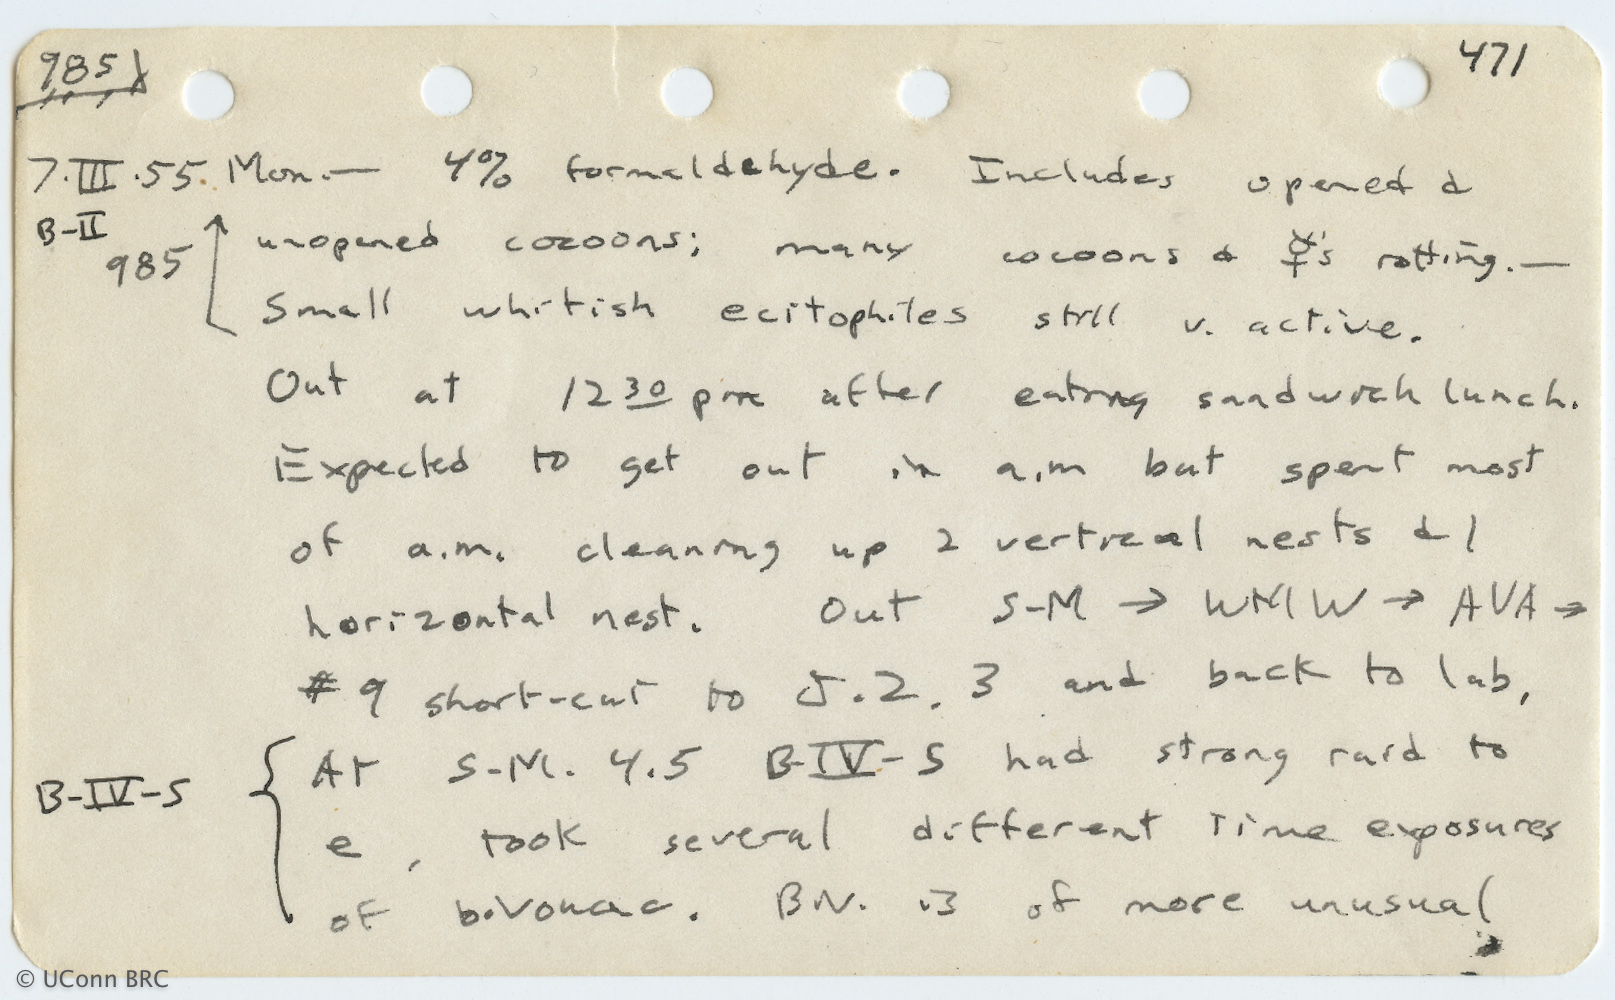 985
471
7.III.55. Mon.— 4% formaldehyde. Includes opened &
B-II
985
unopened cocoons; many cocoons & ☿'s rotting.—
Small whitish ecitophiles still v. active.
Out at 12 30 pm after eating sandwich lunch.
Expected to get out in a.m but spent most
of a.m. cleaning up 2 vertical nests & 1
horizontal nest. Out S-M → WMW → AVA →
#9 short-cut to 5.2, 3 and back to lab,
B-IV-S
At S-M. 4.5 B-IV-S had strong raid to
e, took several different Time exposures
of bivouac. BIV. is of more unusual
© UConn BRC